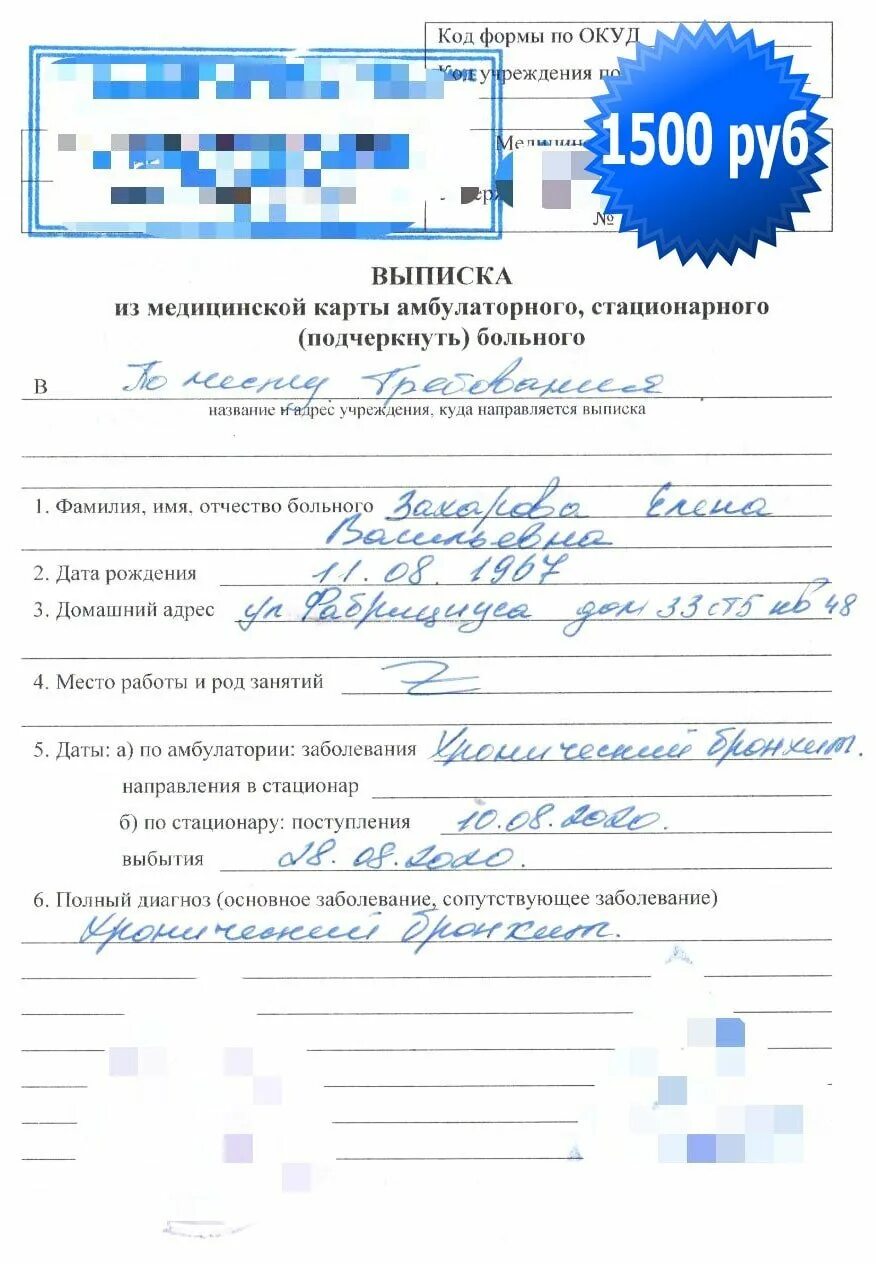 Код формы по ОКУД
Код учреждения по
1500 руб
№
ВЫПИСКА
из медицинской карты амбулаторного, стационарного
(подчеркнуть) больного
В По месту Требования
название и адрес учреждения, куда направляется выписка
1. Фамилия, имя, отчество больного Захарова Елена
Васильевна
2. Дата рождения 11.08.1967
3. Домашний адрес ул Фабрициуса дом 33 ст5 кв 48
4. Место работы и род занятий
5. Даты: а) по амбулатории: заболевания Хронический бронхит.
направления в стационар
б) по стационару: поступления 10.08.2020.
выбытия 28.08.2020.
6. Полный диагноз (основное заболевание, сопутствующее заболевание)
Хронический бронхит.